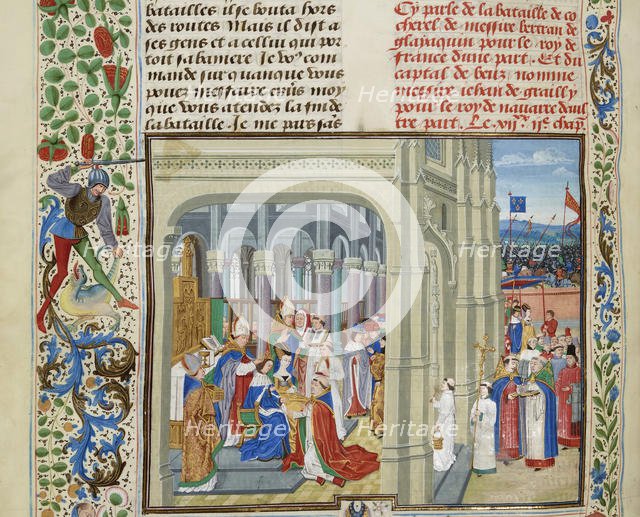 batailles il se bouta hors
des routes Mais il dist a
ses gens et a cellui qui por
toit sa baniere Je voꝰ com
mande sur quanque vous
pouez messaire enůs moy
que vous atendez la fin de
la bataille Je me pars sãs
Cy parle de la bataille de co
cherel de messire bertran de
glayaquin pour le roy de
france dune part Et du
captal de beuz nomme
messire iehan de grailly
pour le roy de nauarre daul
tre part Le. vijˣˣ. ijᵉ chap̃
Heritage
Heritage
Heritage
Heritage
Heritage
Heritage
Heritage
Heritage